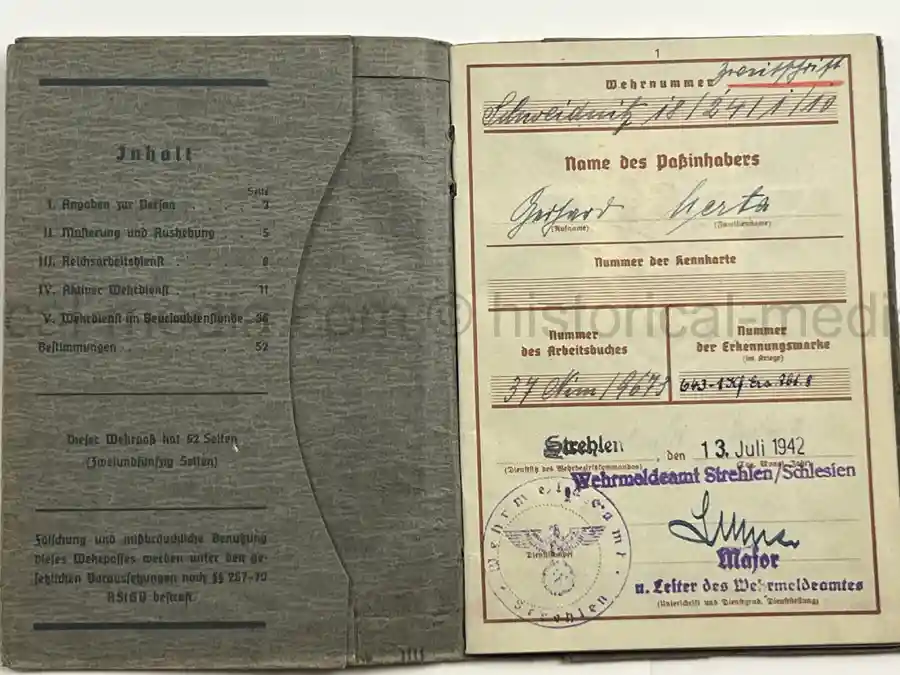 Inhalt
Seite
I. Angaben zur Person . . 3
II. Musterung und Aushebung . 5
III. Reichsarbeitsdienst . . 8
IV. Aktiver Wehrdienst . . 11
V. Wehrdienst im Beurlaubtenstande 36
Bestimmungen . . 52
Dieser Wehrpaß hat 52 Seiten
(Zweiundfünfzig Seiten)
Fälschung und mißbräuchliche Benutzung
dieses Wehrpasses werden unter den ge-
setzlichen Voraussetzungen nach §§ 267-70
RStGB bestraft.
1
Zweitschrift
Wehrnummer
Schweidnitz 18/24/1/10
Name des Paßinhabers
Gerhard Herta
(Rufname) (Familienname)
Nummer der Kennkarte
Nummer
des Arbeitsbuches
Nummer
der Erkennungsmarke
(im Kriege)
37 Nim/9678
643-1.Kf. Ers. Abt. 8
Strehlen, den 13. Juli 1942
(Dienstsitz des Wehrbezirkskommandos)
Wehrmeldeamt Strehlen/Schlesien
Wehrmeldeamt
Dienststempel
Strehlen
Major
u. Leiter des Wehrmeldeamtes
(Unterschrift und Dienstgrad, Dienststellung)
© historical-medi